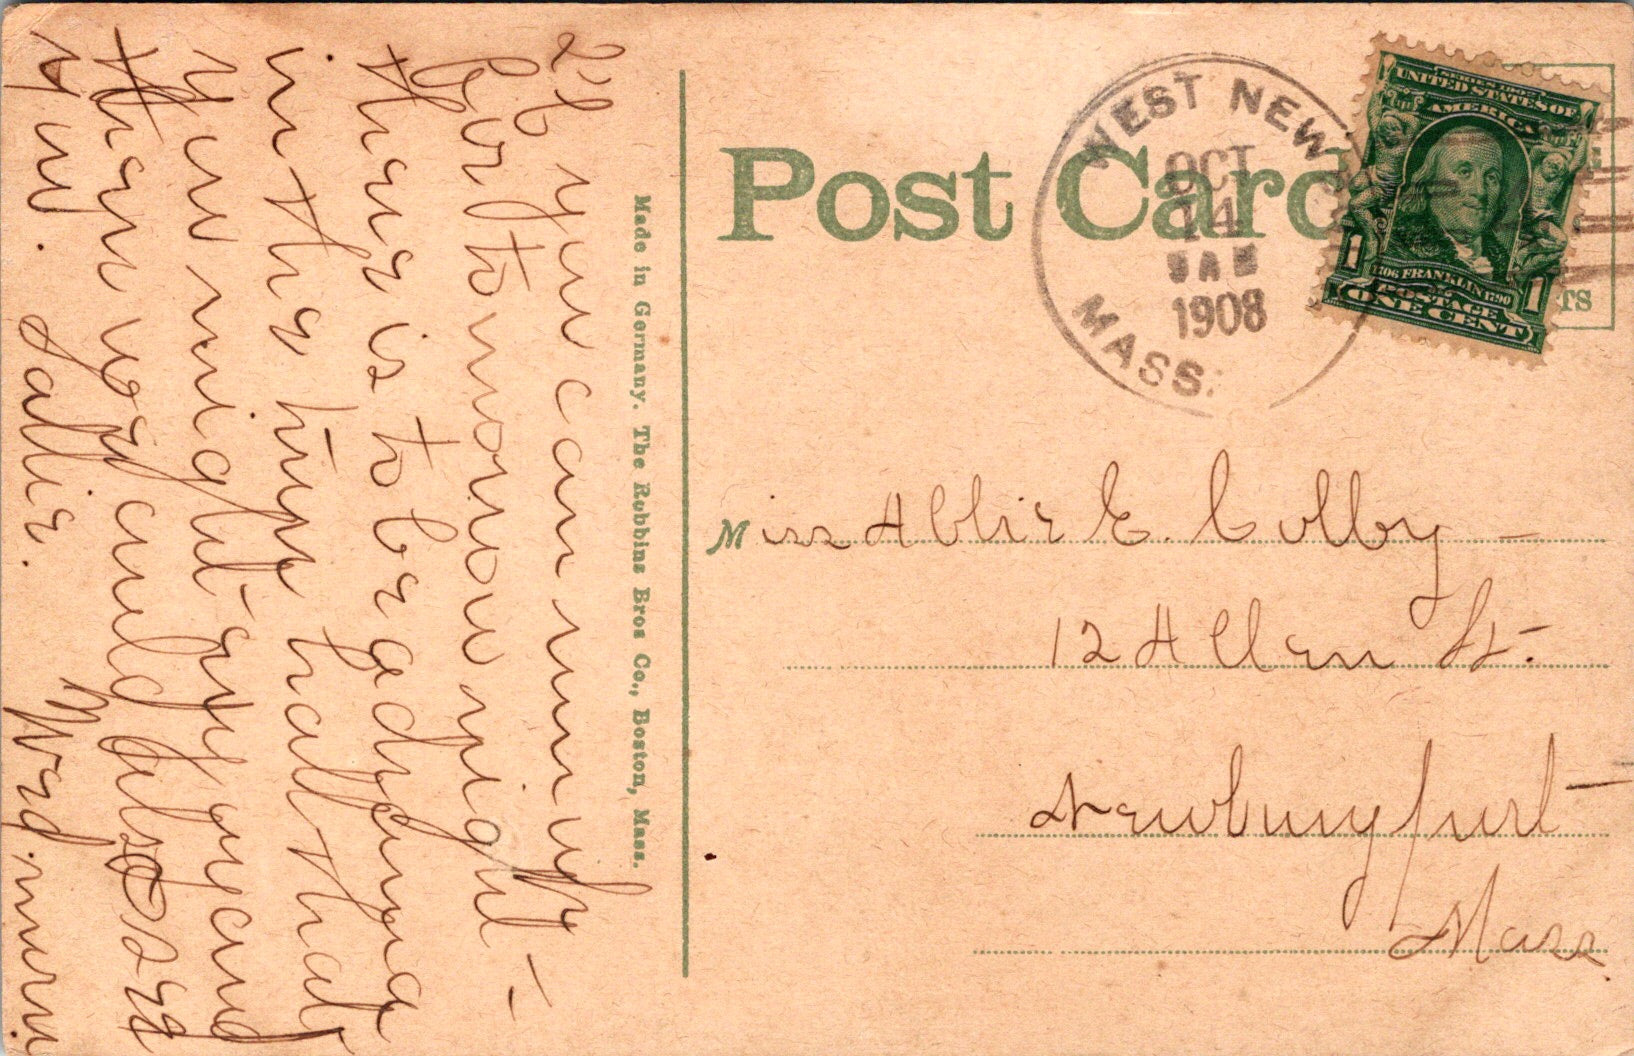 Post Card
WEST NEW
OCT
14
1908
MASS.
SERIES 1902
UNITED STATES OF
AMERICA
1706 FRANKLIN 1790
POSTAGE
1 1
ONE CENT
TS
Miss Abbie E. Colby
12 Allen St.
Newburyport
Mass.
Made in Germany. The Robbins Bros Co., Boston, Mass.
If you can run up
for tomorrow night -
there is to be a
in the hall that
you might enjoy and
then you could also see
Sallie. Wed. morn